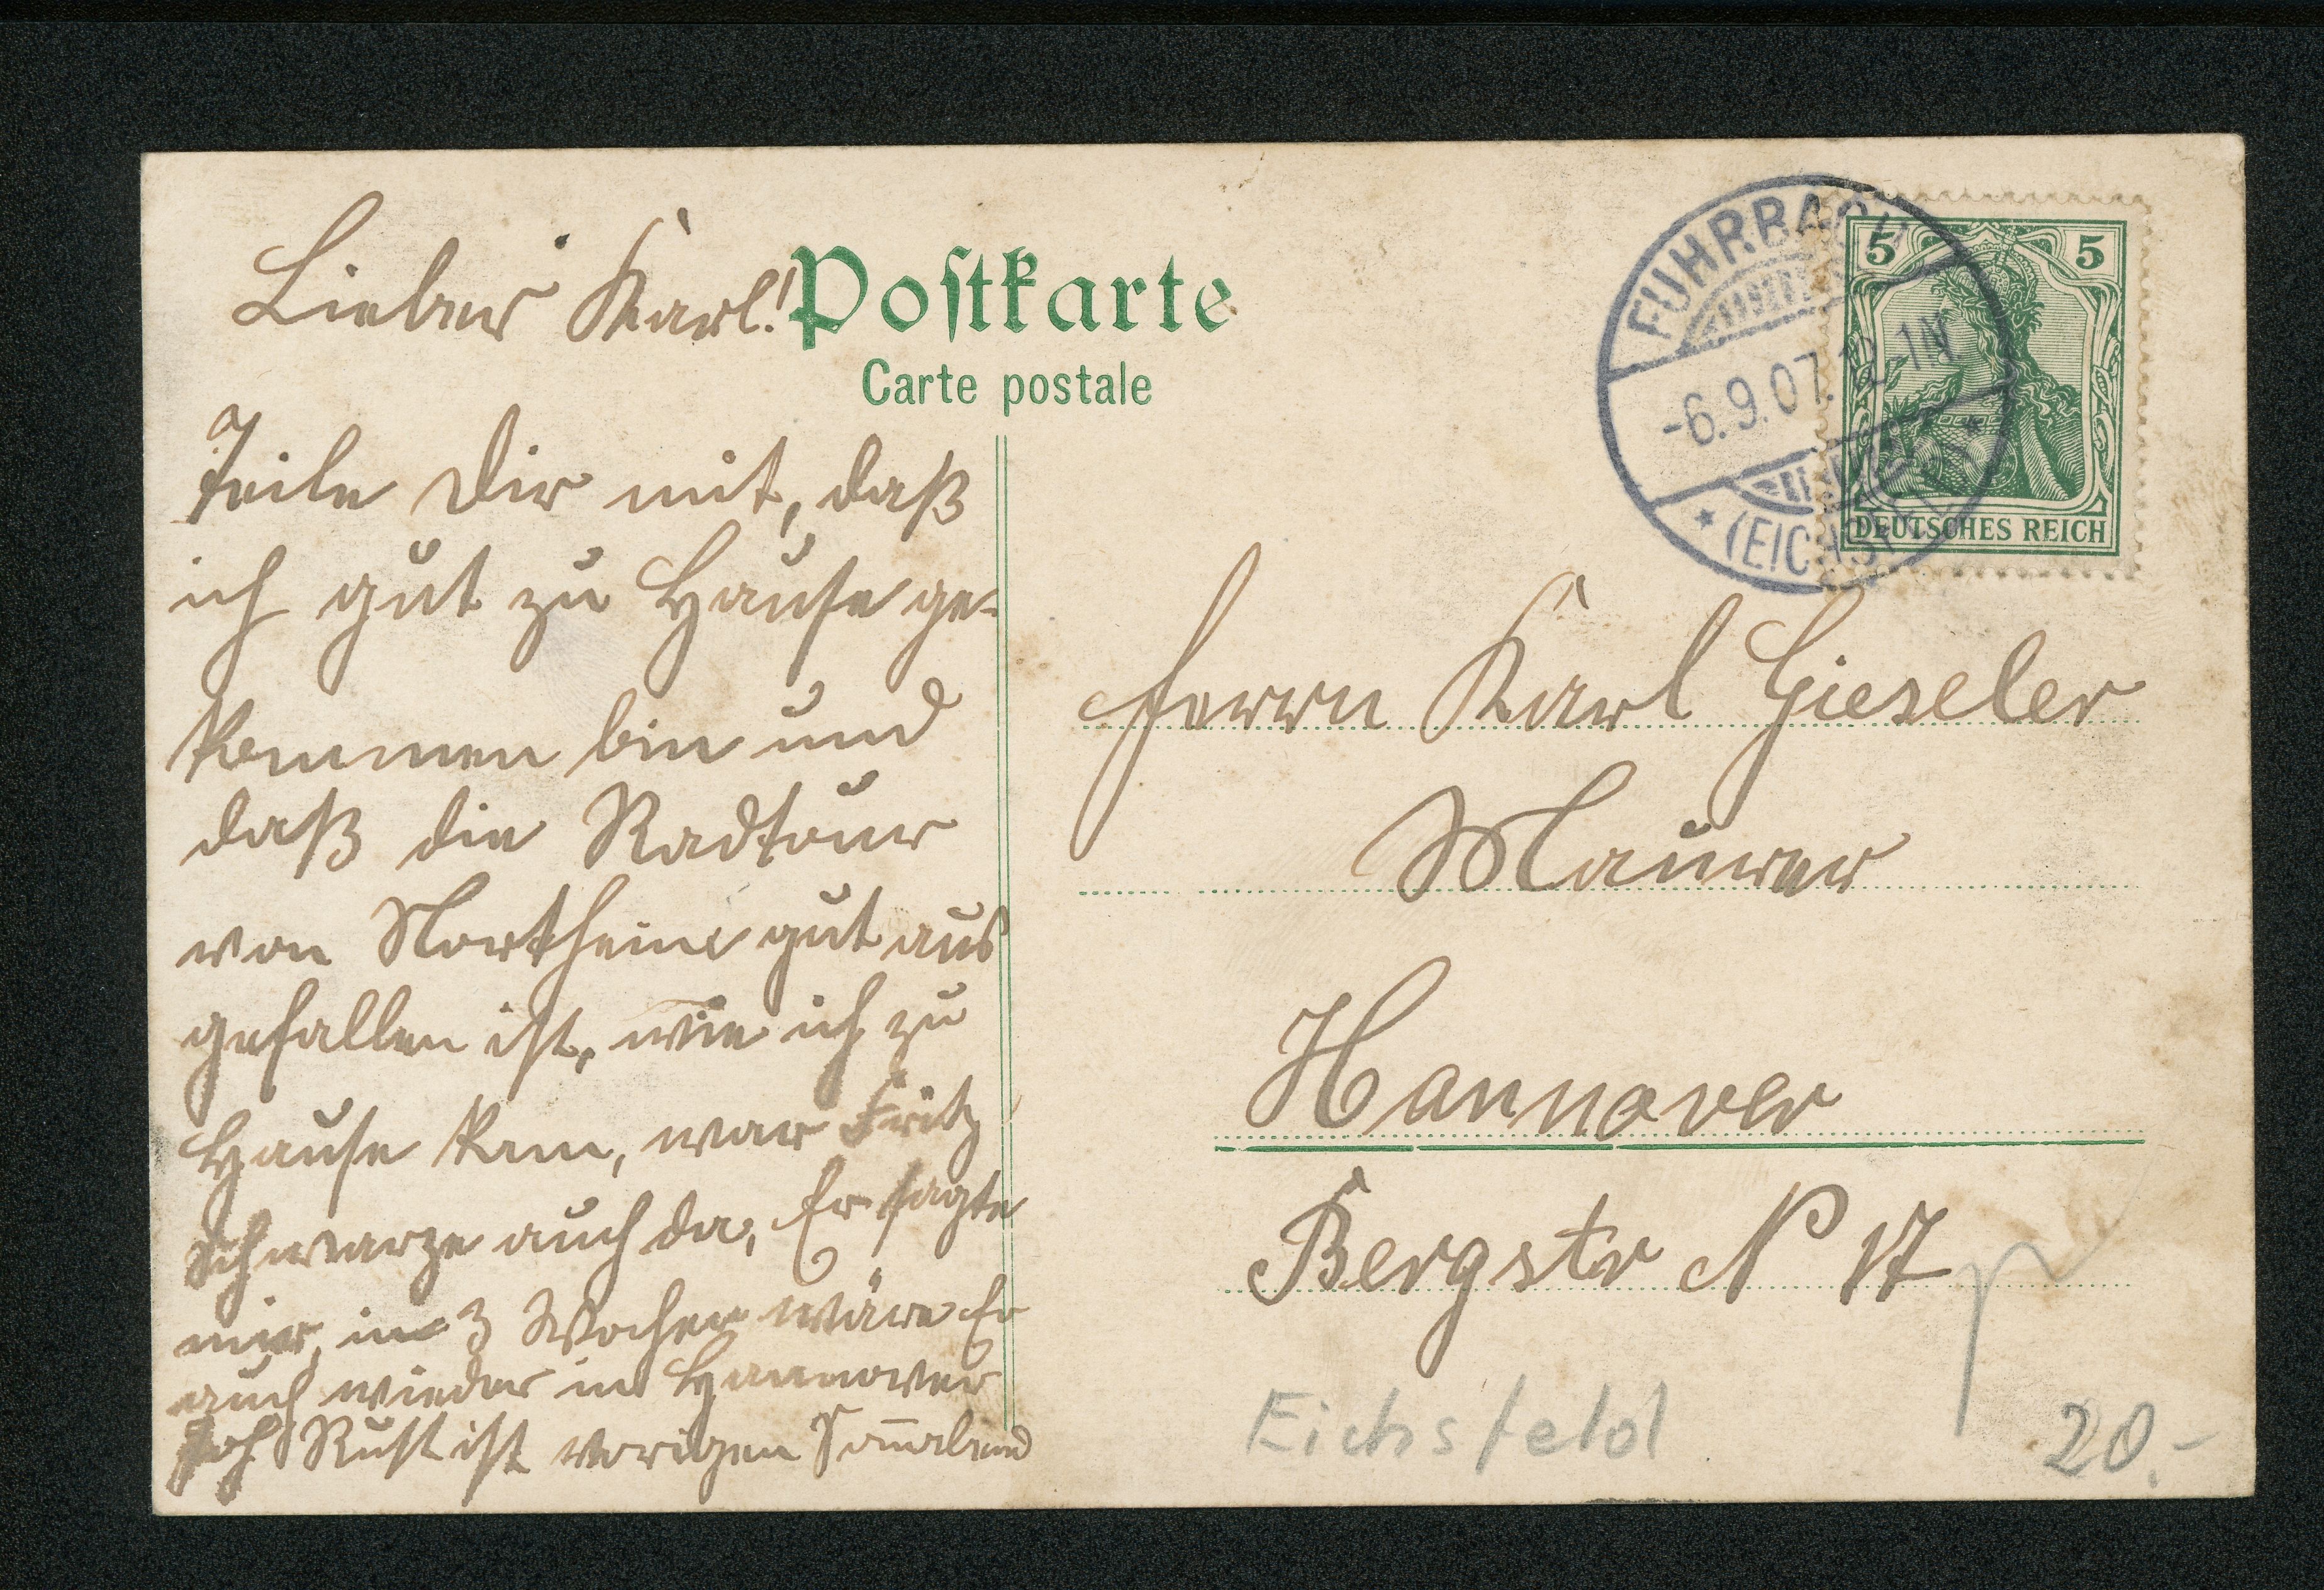 Lieber Karl!
Postkarte
Carte postale
Teile Dir mit, daß
ich gut zu Hause ge-
kommen bin und
daß die Radtour
von Northeim gut aus
gefallen ist, wie ich zu
Hause kam, war Fritz
Schwarze auch da, Er sagte
mir, in 3 Wochen wäre Er
auch wieder in Hannover
Joh Rust ist vorigen Sonnabend
FUHRBACH
-6.9.07. 12-1N
* (EICHSFELD) *
5 5
DEUTSCHES REICH
Herrn Karl Gieseler
Maurer
Hannover
Bergstr N 17
Eichsfeld
20.-